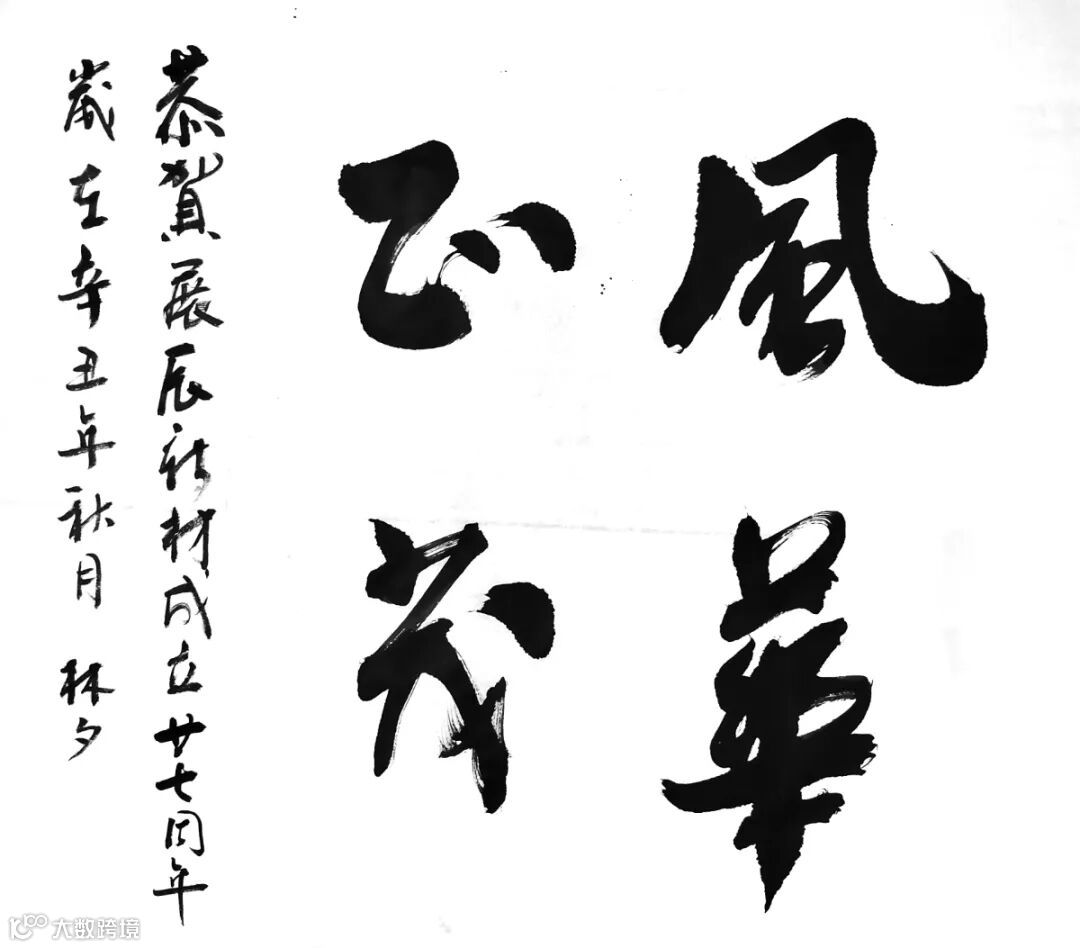 風華
正茂
恭賀展辰新材成立廿七周年
歲在辛丑年秋月 林夕
大数跨境